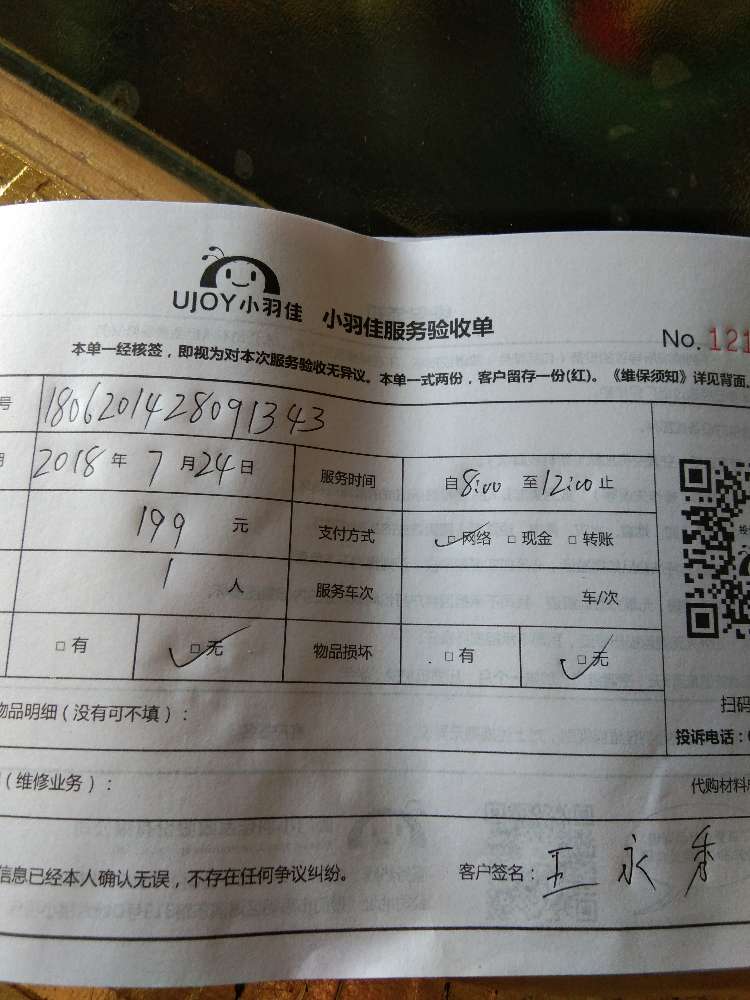 UJOY小羽佳 小羽佳服务验收单
No.121
本单一经核签，即视为对本次服务验收无异议。本单一式两份，客户留存一份(红)。《维保须知》详见背面
号 1806201428091343
2018年7月24日 服务时间 自8:00至12:00止
199元 支付方式 ☑网络 □现金 □转账
1人 服务车次 车/次
□有 ☑无 物品损坏 □有 ☑无
物品明细（没有可不填）：
扫码
投诉电话：
（维修业务）： 代购材料
信息已经本人确认无误，不存在任何争议纠纷。 客户签名：王永秀